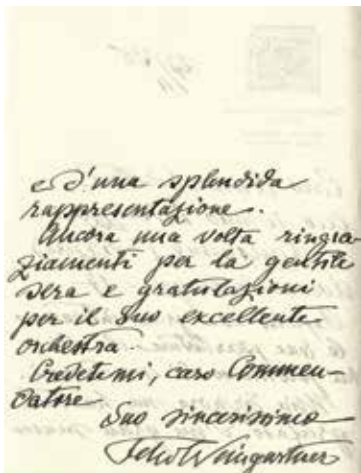 e d'una splendida
rappresentazione.
Ancora una volta ringra-
ziamenti per la gentile
sera e gratulazioni
per il Suo excellente
orchestra.
Credetemi, caro Commen-
datore
Suo sincerissimo
Felix Weingartner